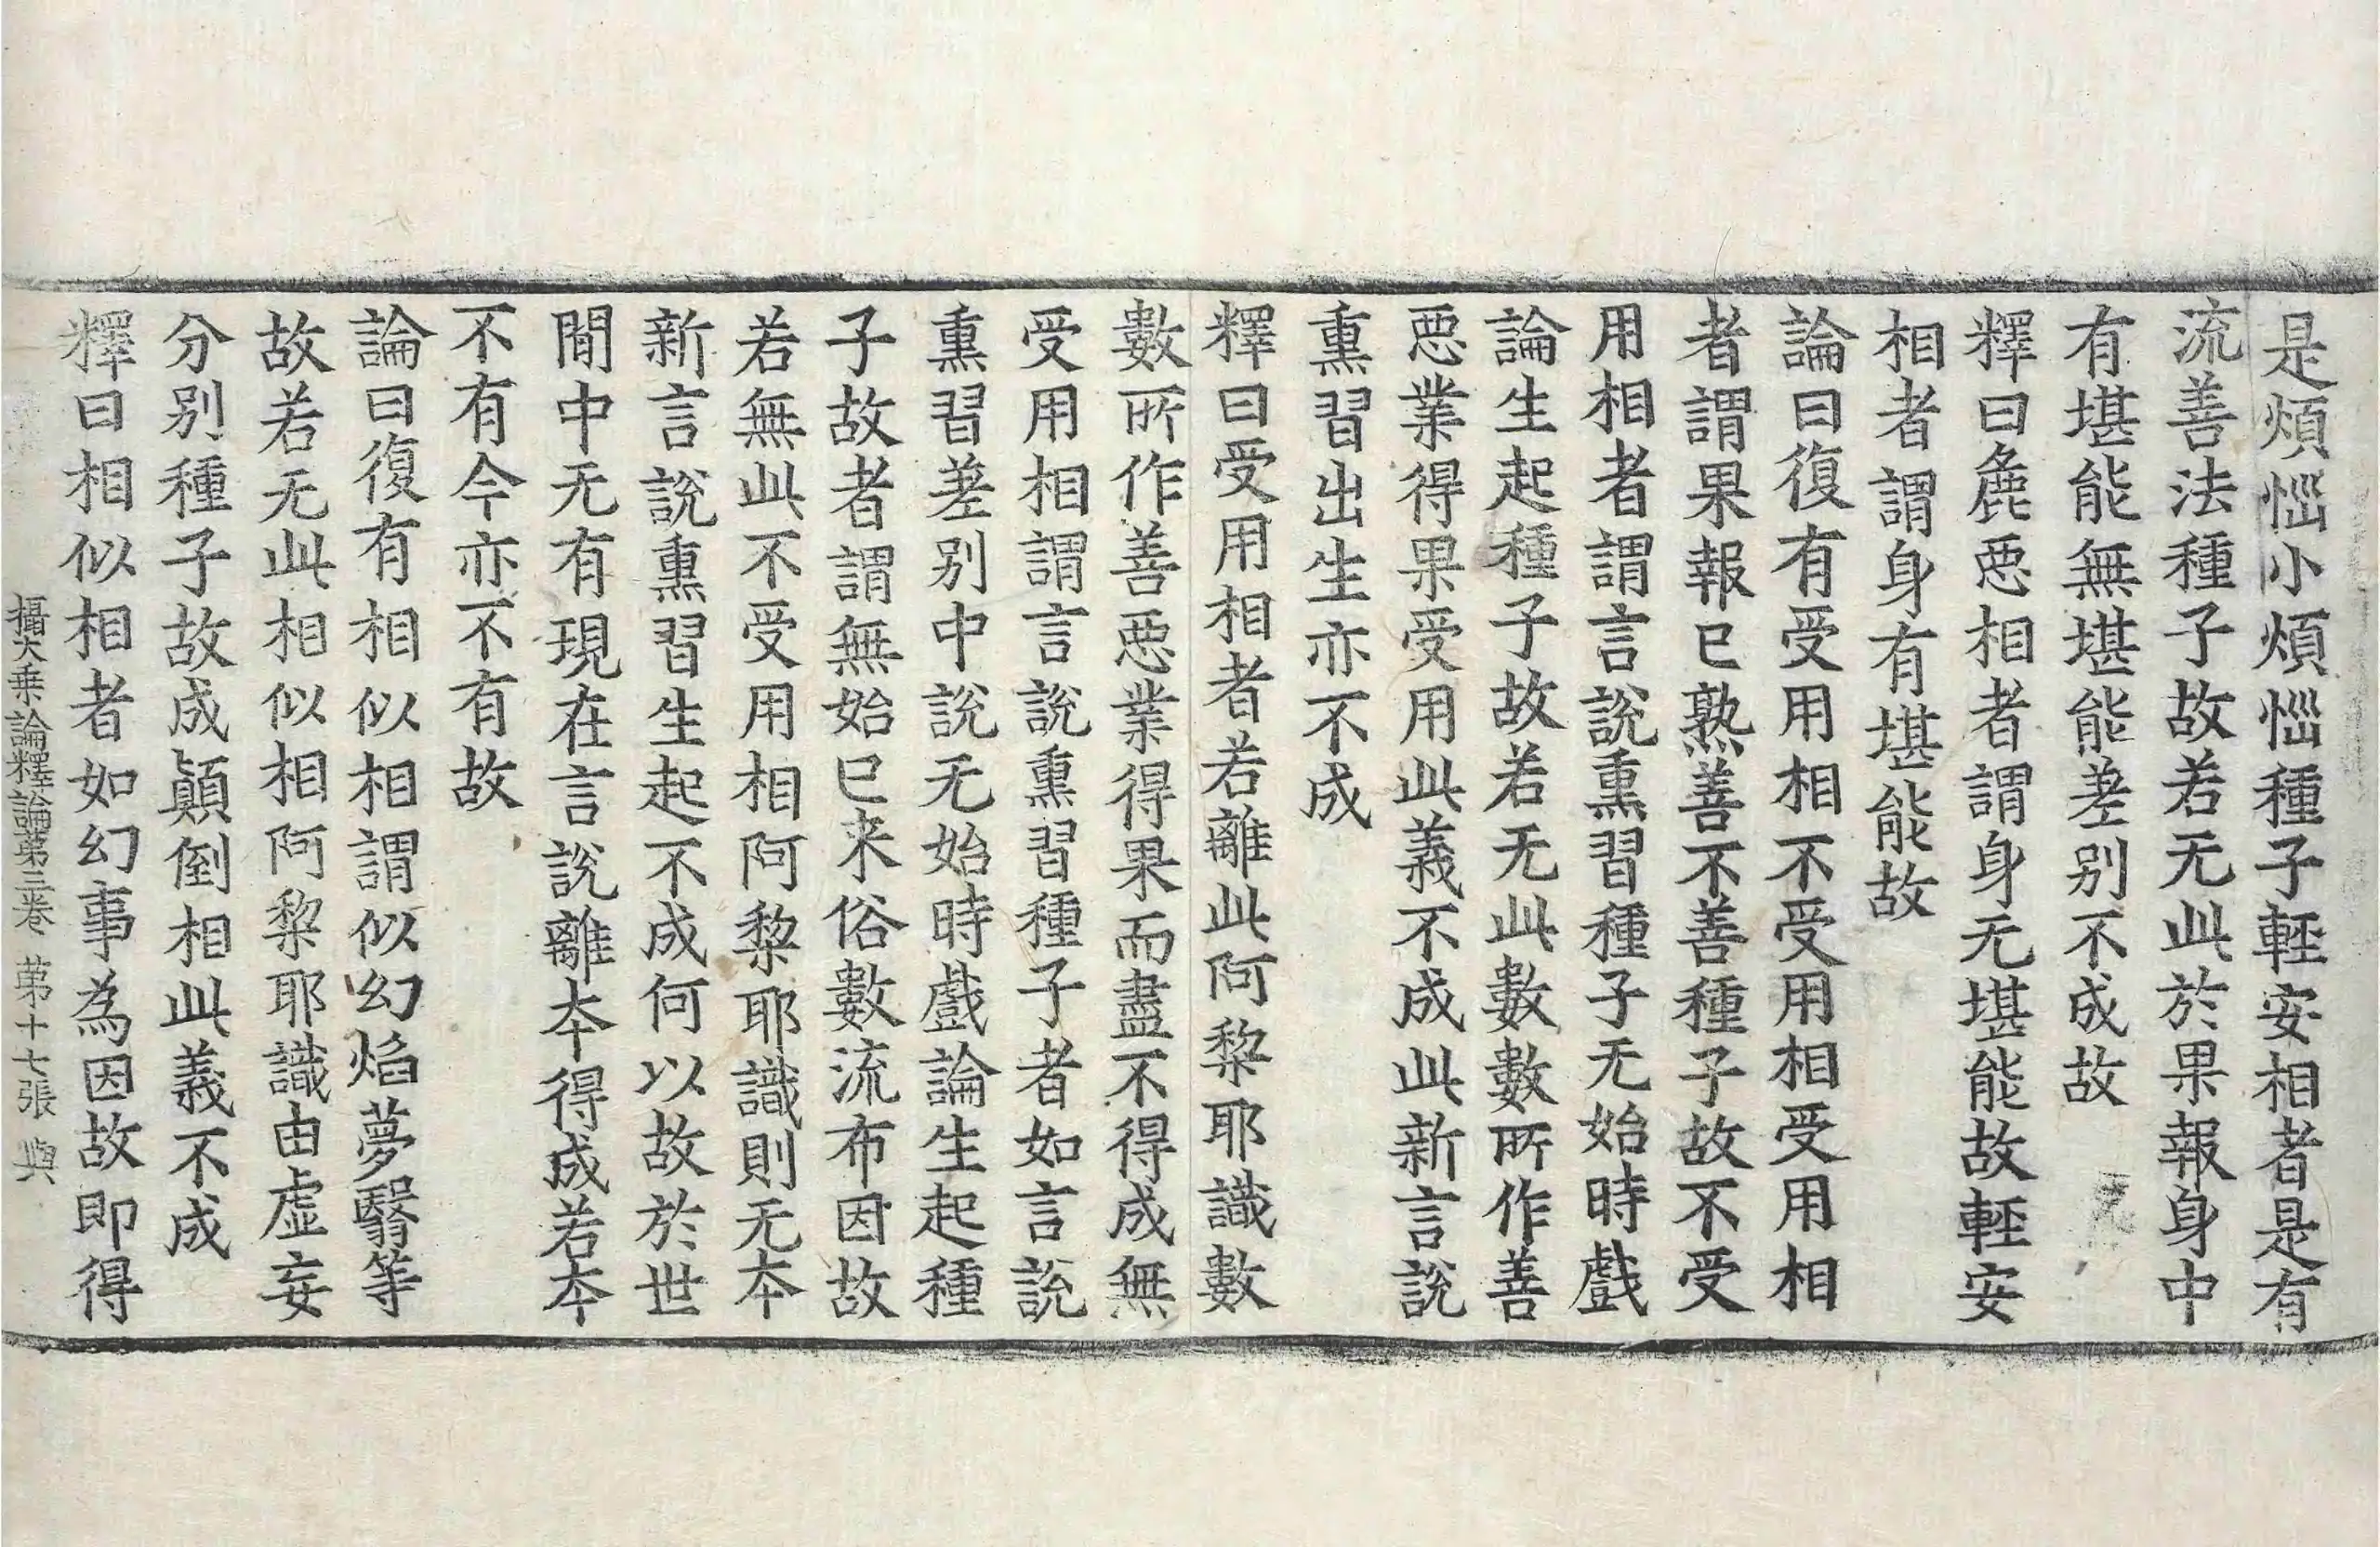 是煩惱小煩惱種子輕安相者是有
流善法種子故若无此於果報身中
有堪能無堪能差別不成故
釋曰麁惡相者謂身无堪能故輕安
相者謂身有堪能故
論曰復有受用相不受用相受用相
者謂果報已熟善不善種子故不受
用相者謂言說熏習種子无始時戲
論生起種子故若无此數數所作善
惡業得果受用此義不成此新言說
熏習出生亦不成
釋曰受用相者若離此阿黎耶識數
數所作善惡業得果而盡不得成無
受用相謂言說熏習種子者如言說
熏習差別中說无始時戲論生起種
子故者謂無始已来俗數流布因故
若無此不受用相阿黎耶識則无本
新言說熏習生起不成何以故於世
間中无有現在言說離本得成若本
不有今亦不有故
論曰復有相似相謂似幻焰夢翳等
故若无此相似相阿黎耶識由虛妄
分別種子故成顛倒相此義不成
釋曰相似相者如幻事為因故即得
攝大乗論釋論第三卷 第十七張 與